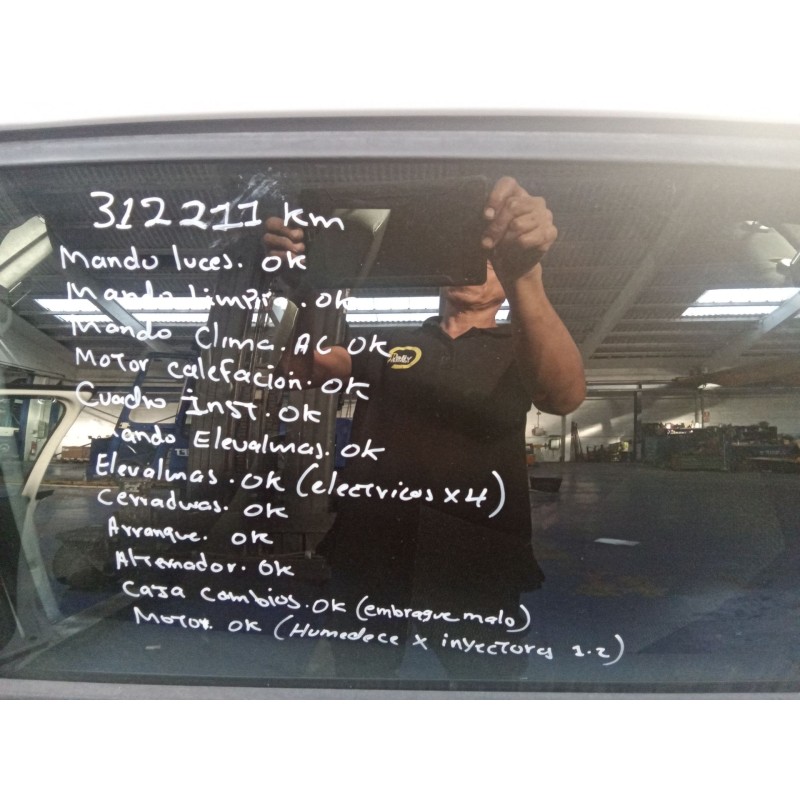 312211 km
Mando luces. OK
Mando Limpia. OK
Mando Clima. AC OK
Motor calefacion. OK
Cuadro inst. OK
Mando Elevalunas. OK
Elevalunas. OK (electricos x4)
Cerraduras. OK
Arranque. OK
Alternador. OK
Caja Cambios. OK (embrague malo)
Motor. OK (Humedece x inyectores 1.2)